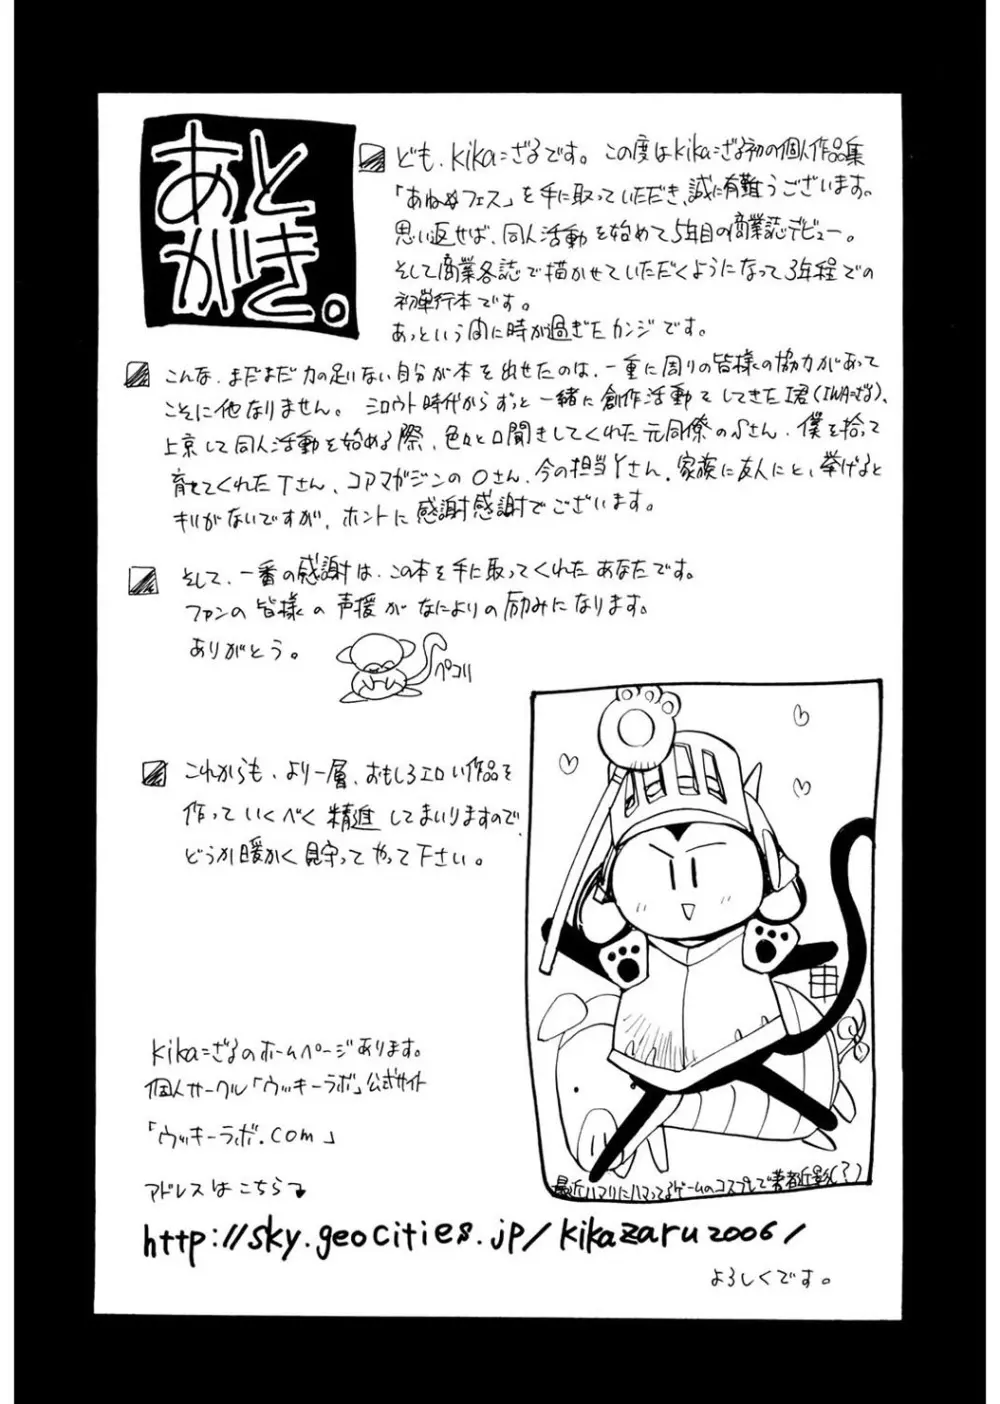 あと
がき。
ども、kika=ざるです。この度はkika=ざる初の個人作品集
「あねヌフェス」を手に取っていただき、誠に有難うございます。
思い返せば、同人活動を始めて5年目の商業誌デビュー。
そして商業各誌で描かせていただくようになって3年程での
初単行本です。
あっという間に時が過ぎたカンジです。
こんな、まだまだ力の足りない自分が本を出せたのは、一重に周りの皆様の協力があって
こそに他なりません。シロウト時代からずっと一緒に創作活動をしてきたI君(IWA=ざる)、
上京して同人活動を始める際、色々と口聞きしてくれた元同僚のSさん、僕を拾って
育ててくれたTさん、コアマガジンのOさん、今の担当Yさん、家族に友人にと、挙げると
キリがないですが、ホントに感謝感謝でございます。
そして、一番の感謝は、この本を手に取ってくれたあなたです。
ファンの皆様の声援がなによりの励みになります。
ありがとう。
ペコリ
これからも、より一層、おもしろエロい作品を
作っていくべく精進してまいりますので、
どうか暖かく見守ってやって下さい。
kika=ざるのホームページあります。
個人サークル「ウッキーラボ」公式サイト
「ウッキーラボ.com」
アドレスはこちら
http://sky.geocities.jp/kikazaru2006/
よろしくです。
最近ハマりにハマってるゲームのコスプレで著者近影(?)